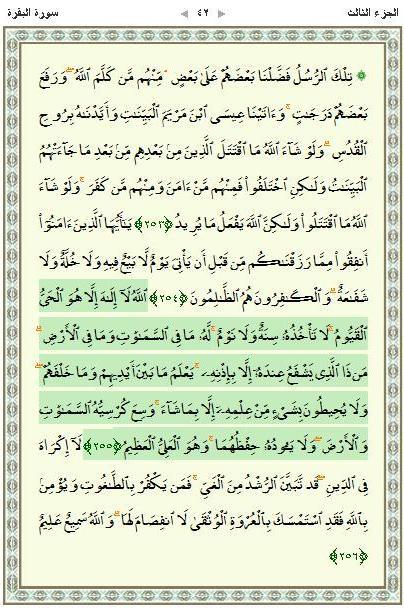 الجزء الثالث ◄ ٤٢ ► سورة البقرة
۞ تِلْكَ ٱلرُّسُلُ فَضَّلْنَا بَعْضَهُمْ عَلَىٰ بَعْضٍ ۘ مِّنْهُم مَّن كَلَّمَ ٱللَّهُ ۖ وَرَفَعَ
بَعْضَهُمْ دَرَجَٰتٍ ۚ وَءَاتَيْنَا عِيسَى ٱبْنَ مَرْيَمَ ٱلْبَيِّنَٰتِ وَأَيَّدْنَٰهُ بِرُوحِ
ٱلْقُدُسِ ۗ وَلَوْ شَآءَ ٱللَّهُ مَا ٱقْتَتَلَ ٱلَّذِينَ مِنۢ بَعْدِهِم مِّنۢ بَعْدِ مَا جَآءَتْهُمُ
ٱلْبَيِّنَٰتُ وَلَٰكِنِ ٱخْتَلَفُوا۟ فَمِنْهُم مَّنْ ءَامَنَ وَمِنْهُم مَّن كَفَرَ ۚ وَلَوْ شَآءَ
ٱللَّهُ مَا ٱقْتَتَلُوا۟ وَلَٰكِنَّ ٱللَّهَ يَفْعَلُ مَا يُرِيدُ ﴿٢٥٣﴾ يَٰٓأَيُّهَا ٱلَّذِينَ ءَامَنُوٓا۟
أَنفِقُوا۟ مِمَّا رَزَقْنَٰكُم مِّن قَبْلِ أَن يَأْتِىَ يَوْمٌ لَّا بَيْعٌ فِيهِ وَلَا خُلَّةٌ وَلَا
شَفَٰعَةٌ ۗ وَٱلْكَٰفِرُونَ هُمُ ٱلظَّٰلِمُونَ ﴿٢٥٤﴾ ٱللَّهُ لَآ إِلَٰهَ إِلَّا هُوَ ٱلْحَىُّ
ٱلْقَيُّومُ ۚ لَا تَأْخُذُهُۥ سِنَةٌ وَلَا نَوْمٌ ۚ لَّهُۥ مَا فِى ٱلسَّمَٰوَٰتِ وَمَا فِى ٱلْأَرْضِ ۗ
مَن ذَا ٱلَّذِى يَشْفَعُ عِندَهُۥٓ إِلَّا بِإِذْنِهِۦ ۚ يَعْلَمُ مَا بَيْنَ أَيْدِيهِمْ وَمَا خَلْفَهُمْ ۖ
وَلَا يُحِيطُونَ بِشَىْءٍ مِّنْ عِلْمِهِۦٓ إِلَّا بِمَا شَآءَ ۚ وَسِعَ كُرْسِيُّهُ ٱلسَّمَٰوَٰتِ
وَٱلْأَرْضَ ۖ وَلَا يَـُٔودُهُۥ حِفْظُهُمَا ۚ وَهُوَ ٱلْعَلِىُّ ٱلْعَظِيمُ ﴿٢٥٥﴾ لَآ إِكْرَاهَ
فِى ٱلدِّينِ ۖ قَد تَّبَيَّنَ ٱلرُّشْدُ مِنَ ٱلْغَىِّ ۚ فَمَن يَكْفُرْ بِٱلطَّٰغُوتِ وَيُؤْمِنۢ
بِٱللَّهِ فَقَدِ ٱسْتَمْسَكَ بِٱلْعُرْوَةِ ٱلْوُثْقَىٰ لَا ٱنفِصَامَ لَهَا ۗ وَٱللَّهُ سَمِيعٌ عَلِيمٌ
﴿٢٥٦﴾